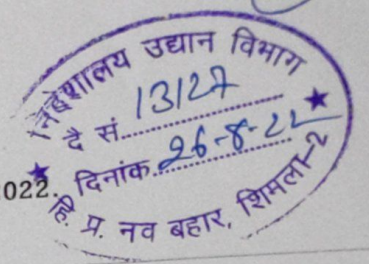 निदेशालय उद्यान विभाग
दै सं. 13127
दिनांक. 26-8-22
022.
हि. प्र. नव बहार, शिमला-2